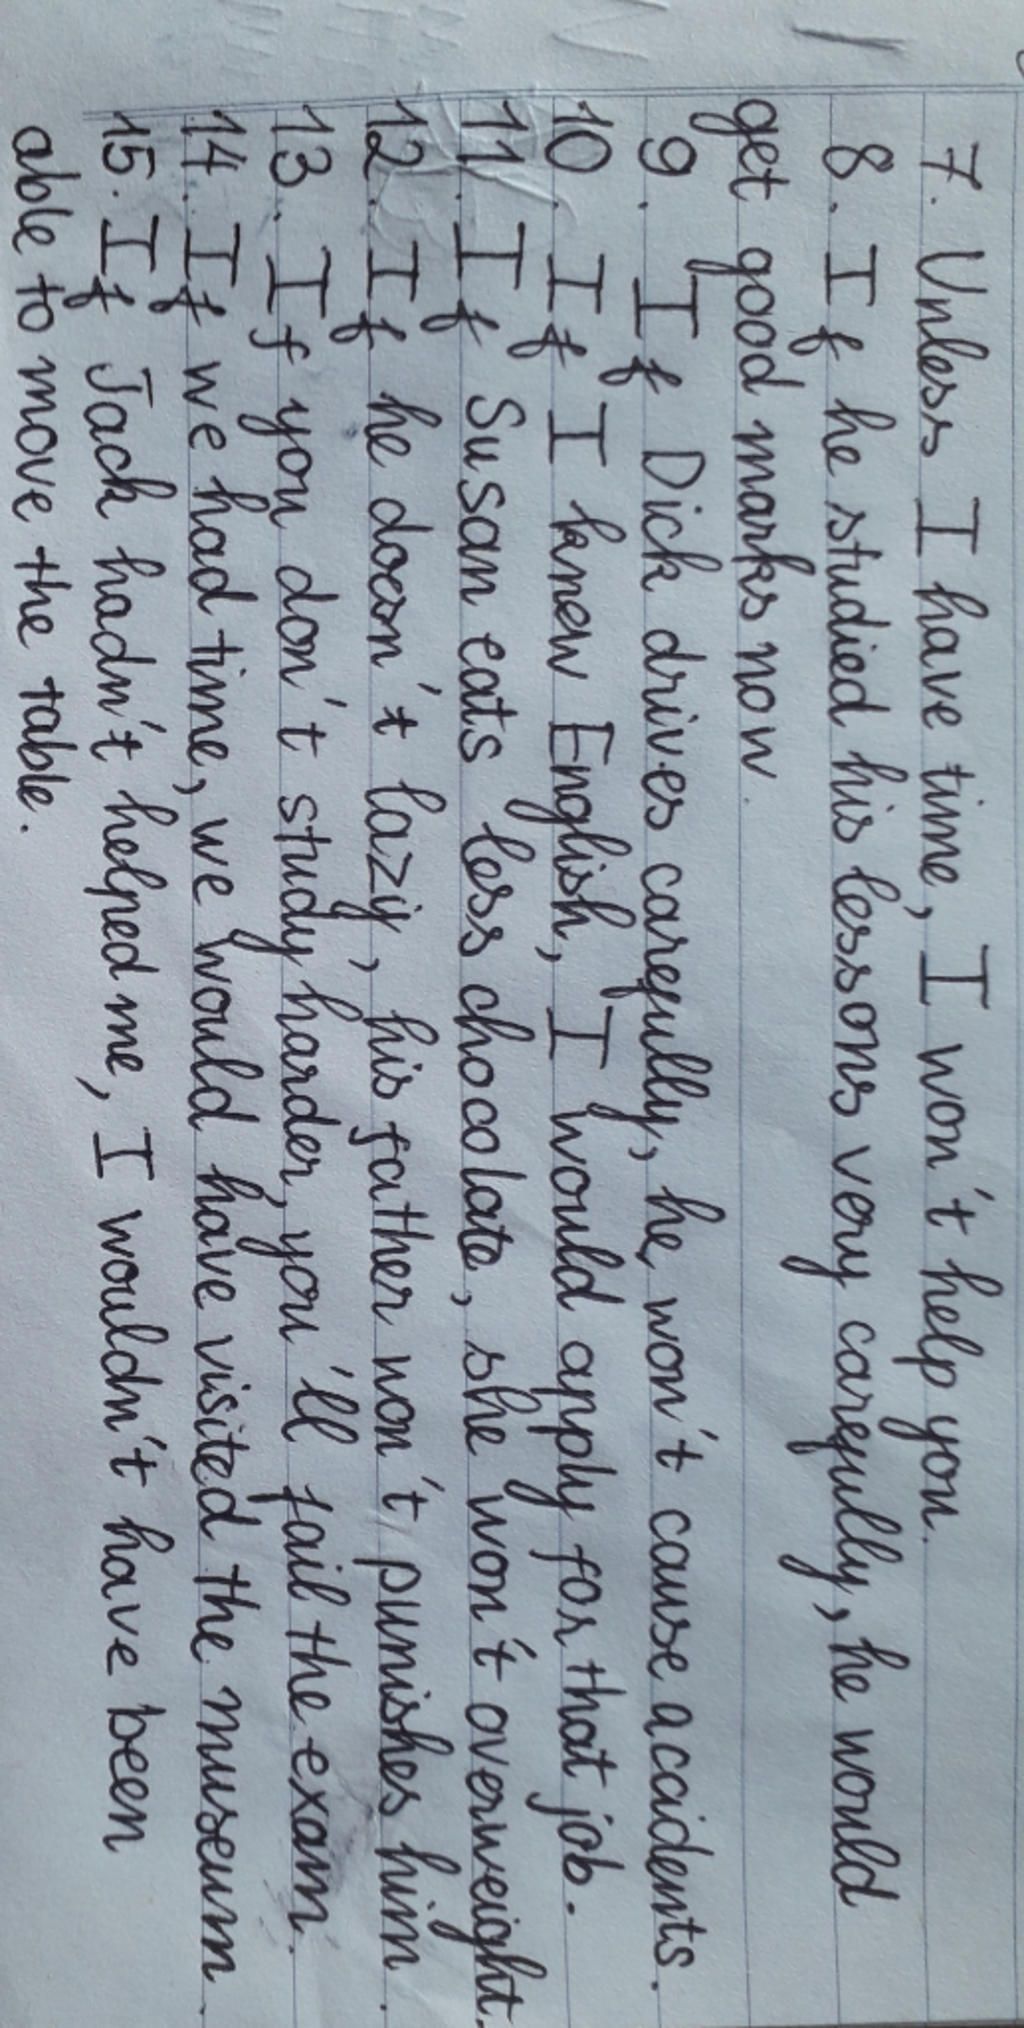 7. Unless I have time, I won't help you.
8. If he studied his lessons very carefully, he would
get good marks now.
9. If Dick drives carefully, he won't cause accidents.
10. If I knew English, I would apply for that job.
11. If Susan eats less chocolate, she won't overweight.
12. If he doesn't lazy, his father won't punishes him.
13. If you don't study harder, you'll fail the exam.
14. If we had time, we would have visited the museum.
15. If Jack hadn't helped me, I wouldn't have been
able to move the table.